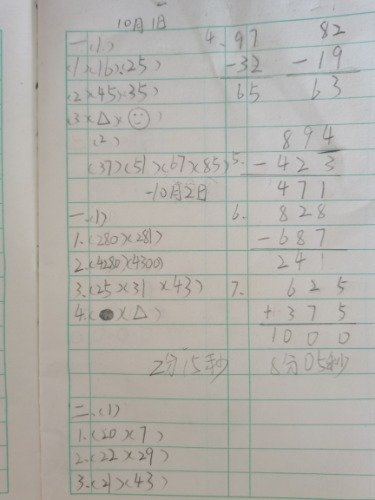 10月1日
一(1) 4. 97 82
(1)(16)(25) -32 -19
(2)(45)(35) 65 63
(3)(△)(☺)
(2) 894
(37)(51)(67)(85) 5. -423
10月2日 471
一.(1) 6. 828
1.(280)(281) -687
2.(4280)(4300) 241
3.(25)(31)(43) 7. 625
4.(●)(△) +375
1000
2分15秒 8分05秒
二.(1)
1.(20)(7)
2.(22)(29)
3.(21)(43)